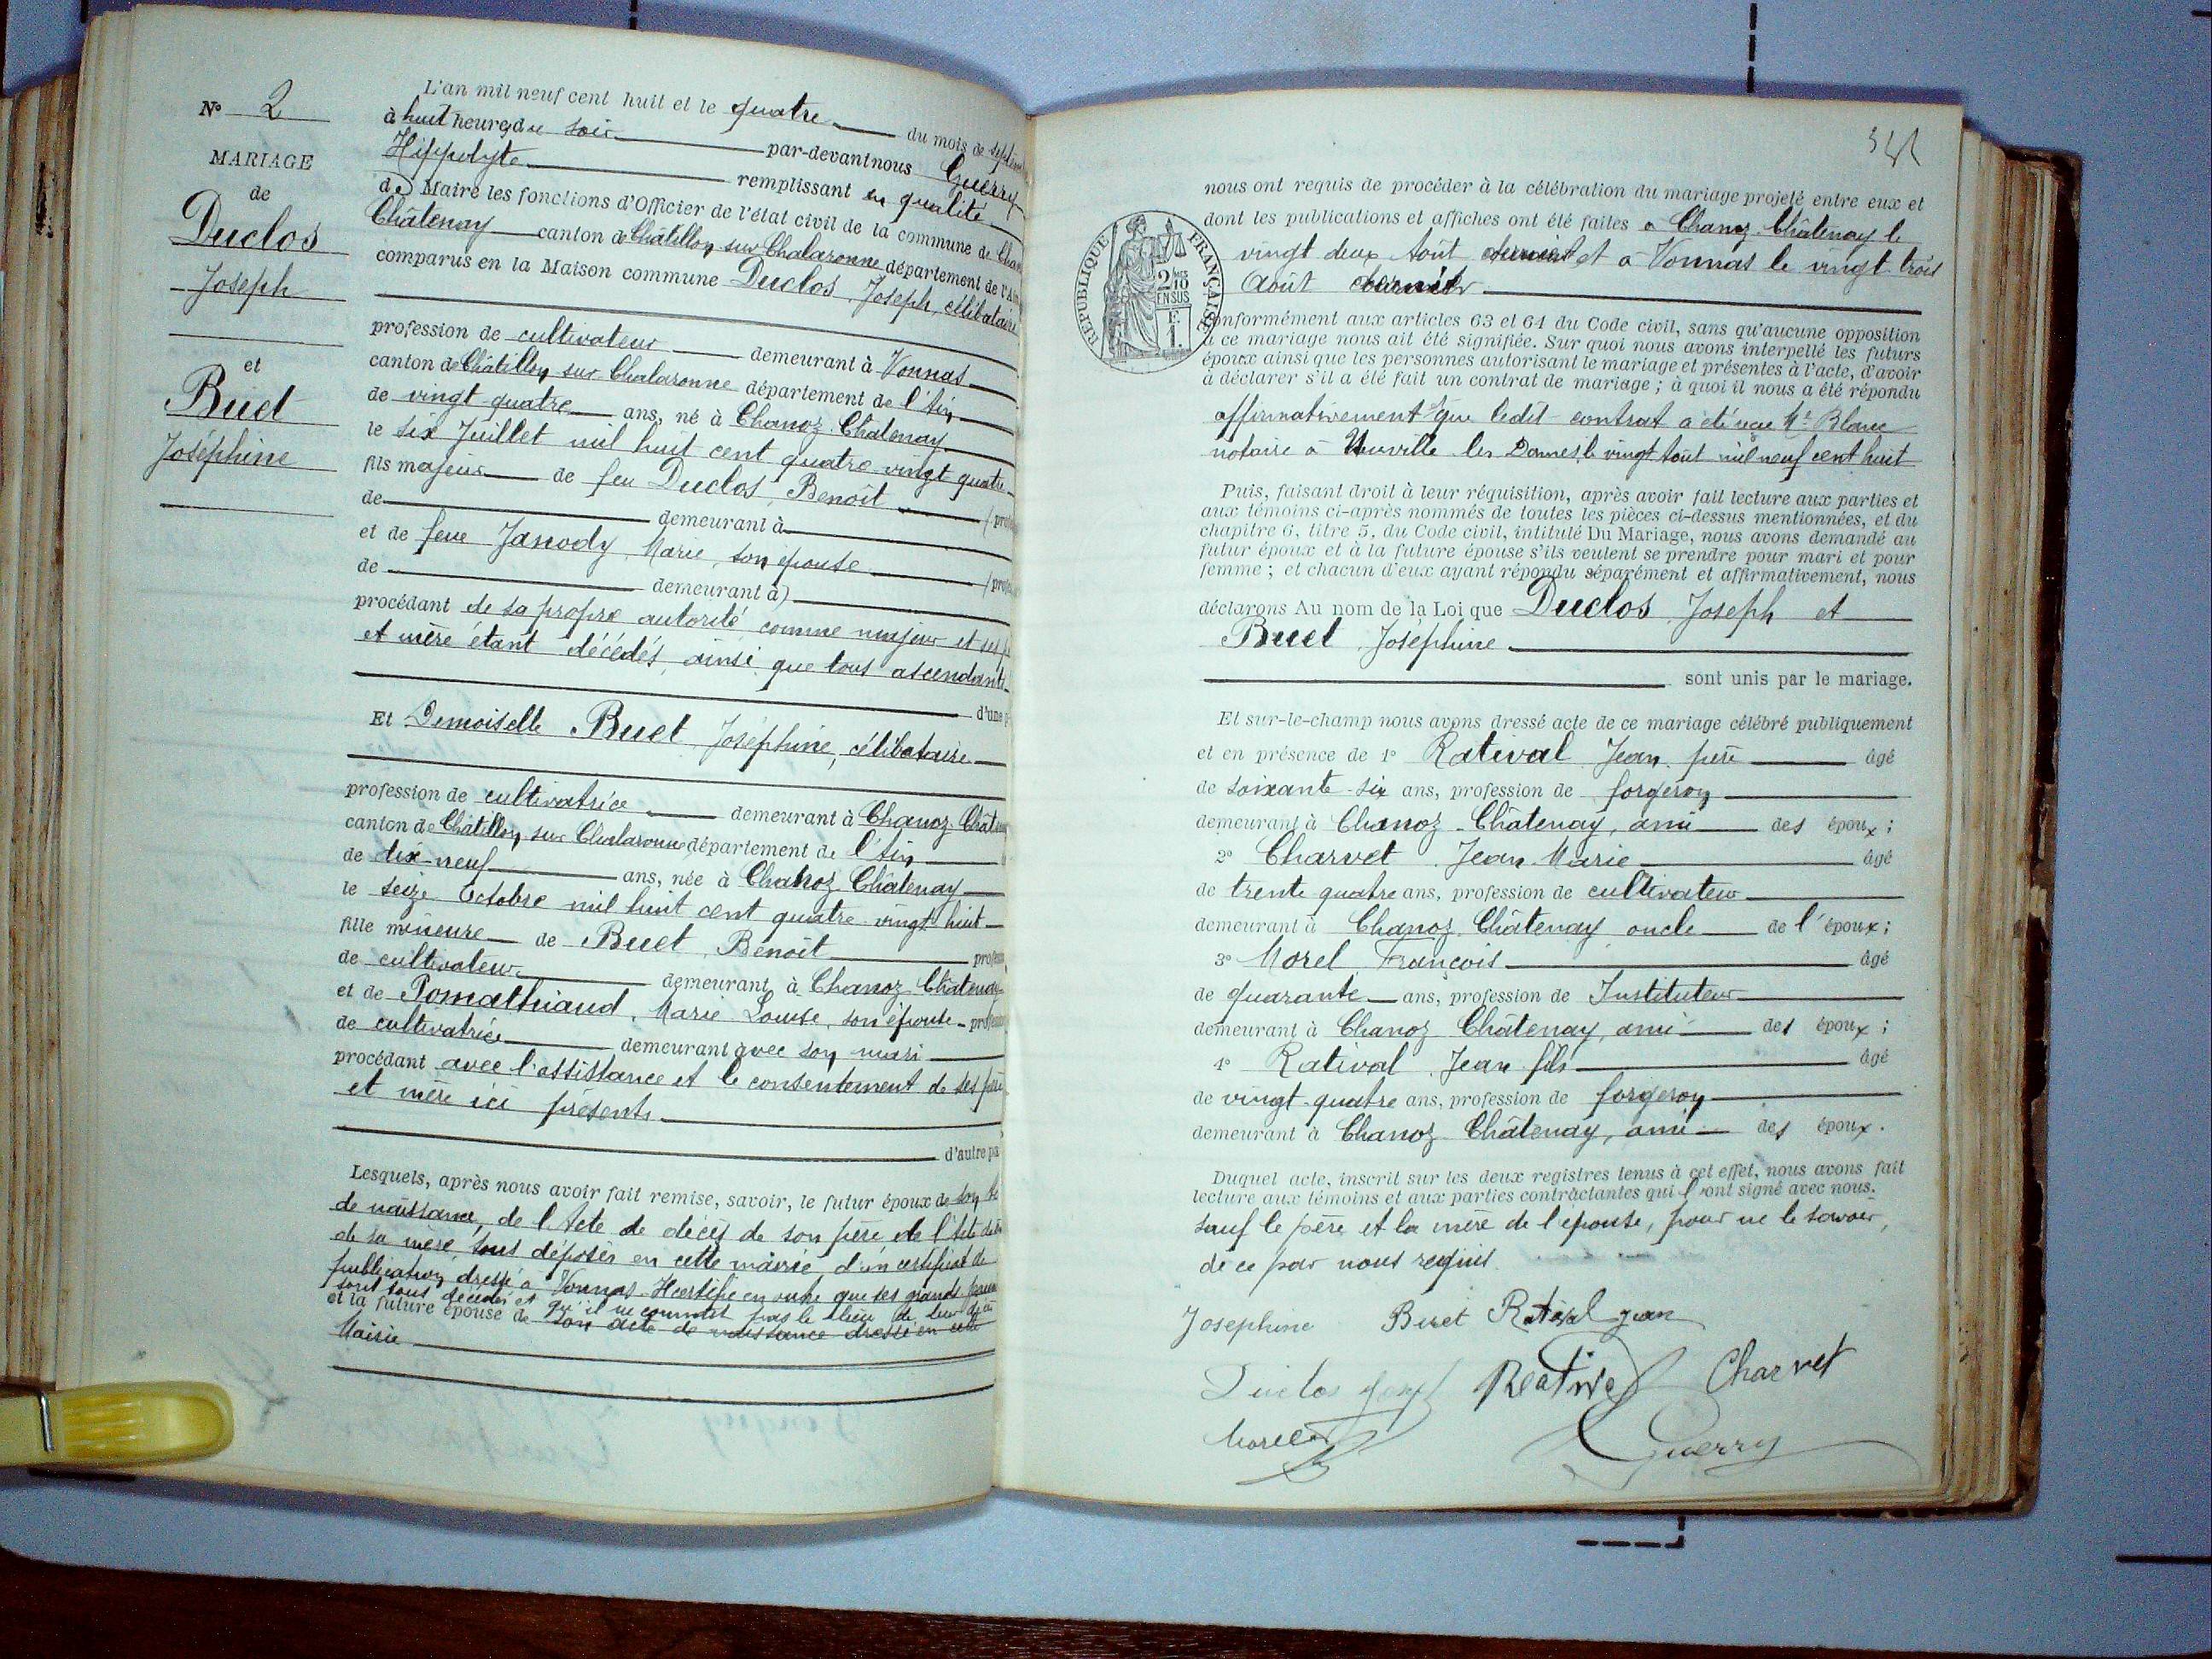 N° 2
MARIAGE
de
Duclos
Joseph
et
Buet
Joséphine
L'an mil neuf cent huit et le quatre du mois de
à huit heures du soir par-devant nous Guerry
Hippolyte remplissant en qualité
de Maire les fonctions d'Officier de l'état civil de la commune de
Châtenay canton de Châtillon sur Chalaronne département de
comparus en la Maison commune Duclos Joseph, célibataire
profession de cultivateur demeurant à Vonnas
canton de Châtillon sur Chalaronne département de l'Ain
de vingt quatre ans, né à Chanoz Châtenay
le six Juillet mil huit cent quatre vingt quatre
fils majeur de feu Duclos, Benoît
de demeurant à
et de feue Janody, Marie, son épouse
de demeurant à)
procédant de sa propre autorité comme majeur et ses
et mère étant décédés, ainsi que tous ascendants
d'une
Et Demoiselle Buet Joséphine, célibataire
profession de cultivatrice demeurant à Chanoz
canton de Châtillon sur Chalaronne département de l'Ain
de dix-neuf ans, née à Chanoz Châtenay
le seize Octobre mil huit cent quatre-vingt huit
fille mineure de Buet, Benoît
de cultivateur demeurant à Chanoz Châtenay
et de Pomathiaud, Marie Louise, son épouse
de cultivatrice demeurant avec son mari
procédant avec l'assistance et le consentement de ses père
et mère ici présents
d'autre
Lesquels, après nous avoir fait remise, savoir, le futur époux de son
de naissance, de l'Acte de décès de son père, de l'Acte
de sa mère, tous déposés en cette mairie, d'un certificat de
publication dressé à Vonnas. Il certifie en outre que ses grands
sont tous décédés et qu'il ne connait pas le lieu de leur décès
et la future épouse de son acte de naissance dressé en cette
Mairie
nous ont requis de procéder à la célébration du mariage projeté entre eux et
dont les publications et affiches ont été faites à Chanoz-Châtenay le
vingt deux Août et à Vonnas le vingt trois
Août
RÉPUBLIQUE FRANÇAISE
2/10
EN SUS
F.
1.
Conformément aux articles 63 et 64 du Code civil, sans qu'aucune opposition
à ce mariage nous ait été signifiée. Sur quoi nous avons interpellé les futurs
époux ainsi que les personnes autorisant le mariage et présentes à l'acte, d'avoir
à déclarer s'il a été fait un contrat de mariage ; à quoi il nous a été répondu
affirmativement que ledit contrat a été reçu Me Blanc
notaire à Neuville les Dames, le vingt Août mil neuf cent huit
Puis, faisant droit à leur réquisition, après avoir fait lecture aux parties et
aux témoins ci-après nommés de toutes les pièces ci-dessus mentionnées, et du
chapitre 6, titre 5, du Code civil, intitulé Du Mariage, nous avons demandé au
futur époux et à la future épouse s'ils veulent se prendre pour mari et pour
femme ; et chacun d'eux ayant répondu séparément et affirmativement, nous
déclarons Au nom de la Loi que Duclos, Joseph et
Buet Joséphine
sont unis par le mariage.
Et sur-le-champ nous avons dressé acte de ce mariage célébré publiquement
et en présence de 1° Rativał Jean père âgé
de soixante-six ans, profession de forgeron
demeurant à Chanoz-Châtenay, ami des époux ;
2° Charvet Jean Marie âgé
de trente quatre ans, profession de cultivateur
demeurant à Chanoz Châtenay oncle de l'époux ;
3° Morel François âgé
de quarante ans, profession de Instituteur
demeurant à Chanoz Châtenay, ami des époux ;
4° Ratival Jean fils âgé
de vingt-quatre ans, profession de forgeron
demeurant à Chanoz Châtenay, ami des époux.
Duquel acte, inscrit sur les deux registres tenus à cet effet, nous avons fait
lecture aux témoins et aux parties contractantes qui l'ont signé avec nous.
sauf le père et la mère de l'épouse, pour ne le savoir,
de ce par nous requis.
Josephine Buet Ratival Jean
Duclos Ratival Charvet
Morel Guerry